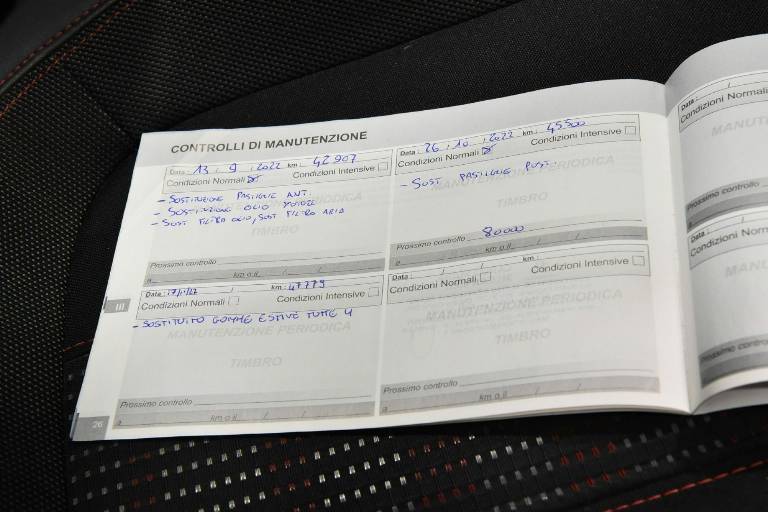 CONTROLLI DI MANUTENZIONE
Data: 13 / 9 / 2022 km: 42907
Condizioni Normali Condizioni Intensive
- SOSTITUZIONE PASTIGLIE ANT.
- SOSTITUZIONE OLIO MOTORE
- SOST FILTRO OLIO, SOST FILTRO ARIA
MANUTENZIONE PERIODICA
TIMBRO
Prossimo controllo
a km o il / /
Data: 26 / 10 / 2022 km: 45500
Condizioni Normali Condizioni Intensive
- SOST PASTIGLIE POST.
MANUTENZIONE PERIODICA
TIMBRO
80000
Prossimo controllo
a km o il / /
III
Data: 17/11/22 / km: 47779
Condizioni Normali Condizioni Intensive
- SOSTITUITO GOMME ESTIVE TUTTE 4
MANUTENZIONE PERIODICA
TIMBRO
Prossimo controllo
a km o il / /
Data: / / km:
Condizioni Normali Condizioni Intensive
MANUTENZIONE PERIODICA
TIMBRO
Prossimo controllo
a km o il / /
26
Data:
Condizioni Normali
Prossimo controllo
a
Data:
Condizioni Norm
Prossimo contro
a